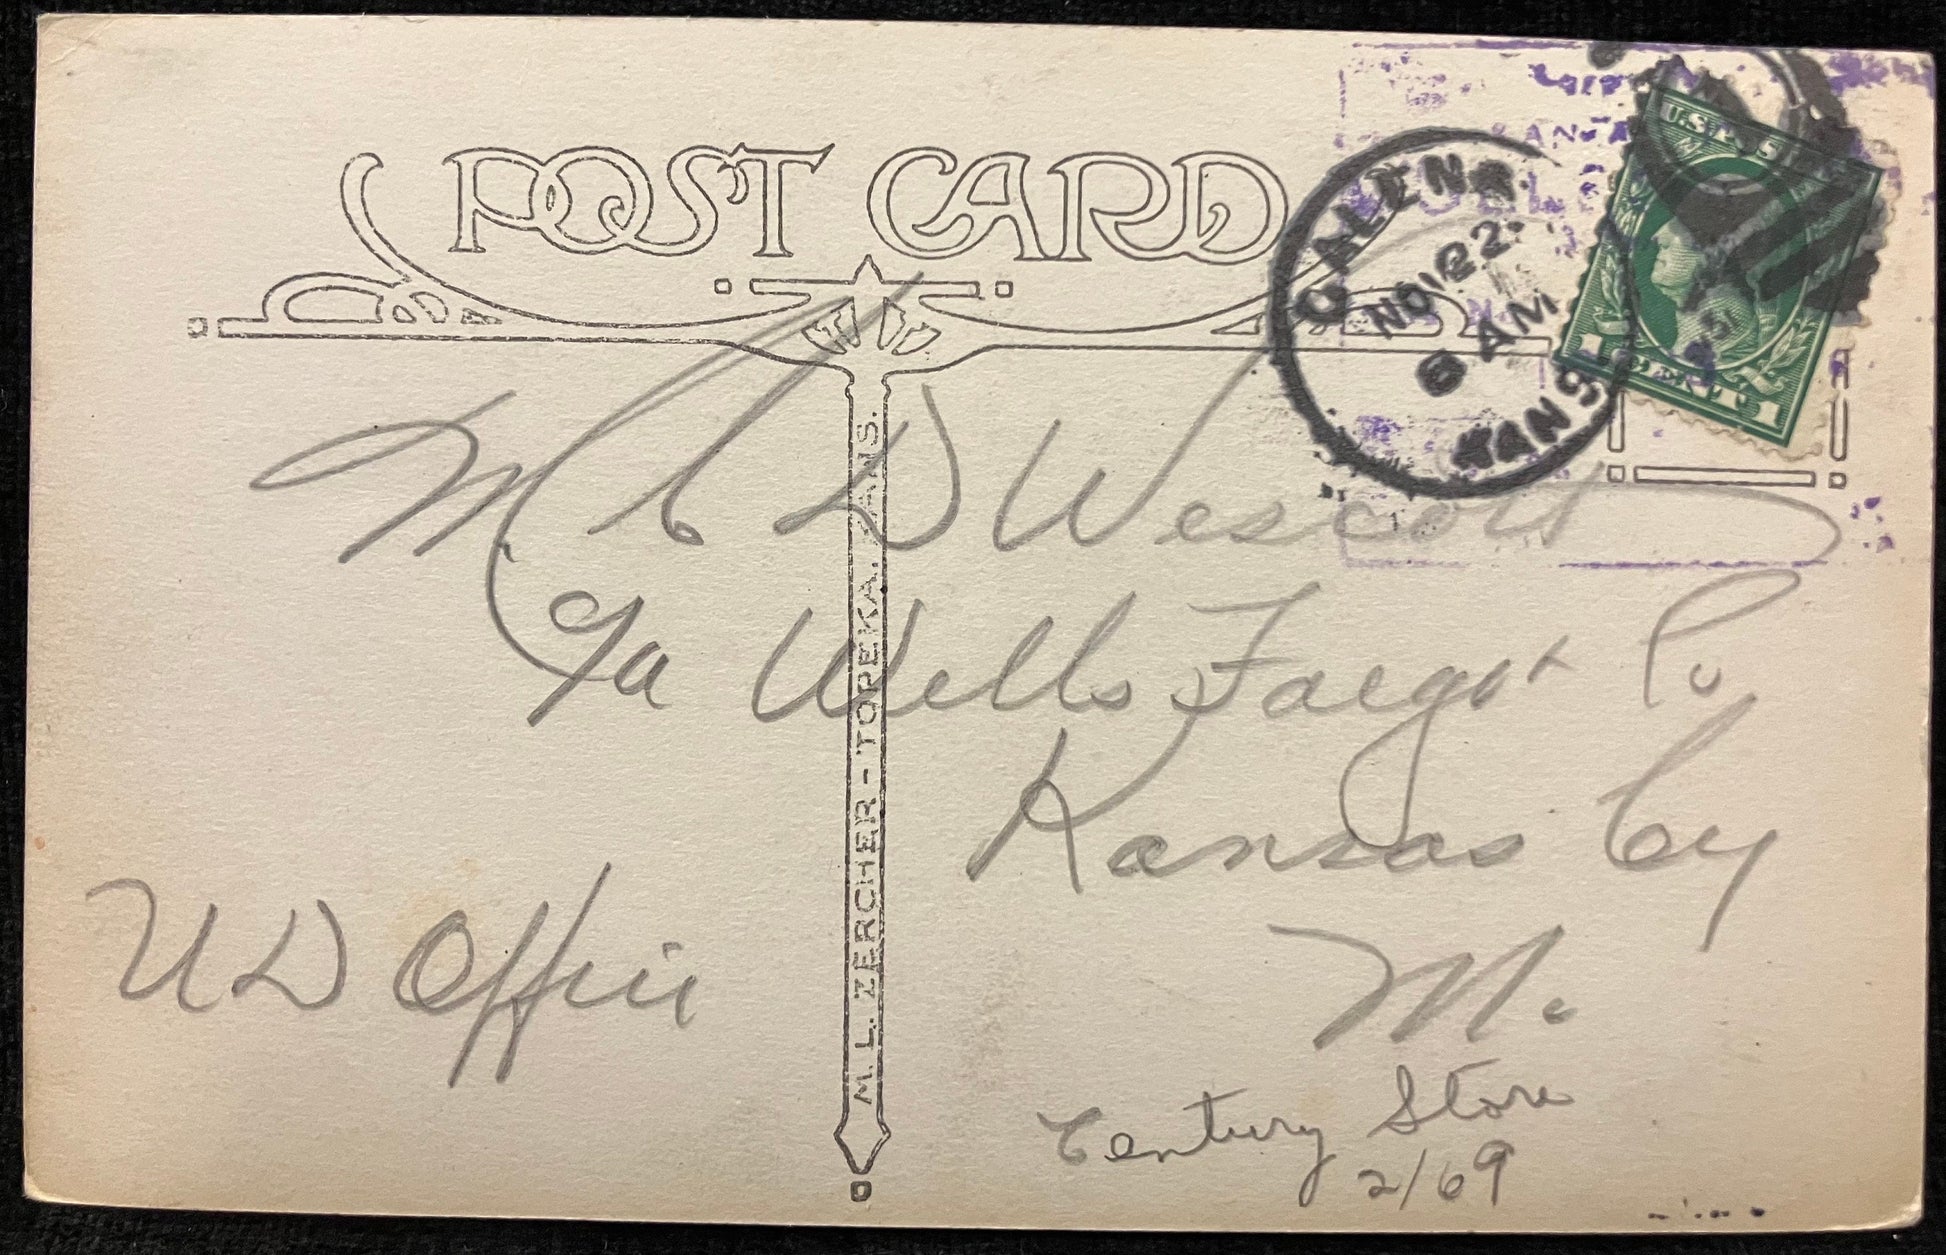 POST CARD
GALENA.
NOV 22
8 AM
KANS
U.S. POSTAGE
1 CENT 1
M. L. ZERCHER - TOPEKA, KANS.
M C D Wescott
Wells Faego Co
Kansas Cy
Mo
U D Office
Century Store
2/69